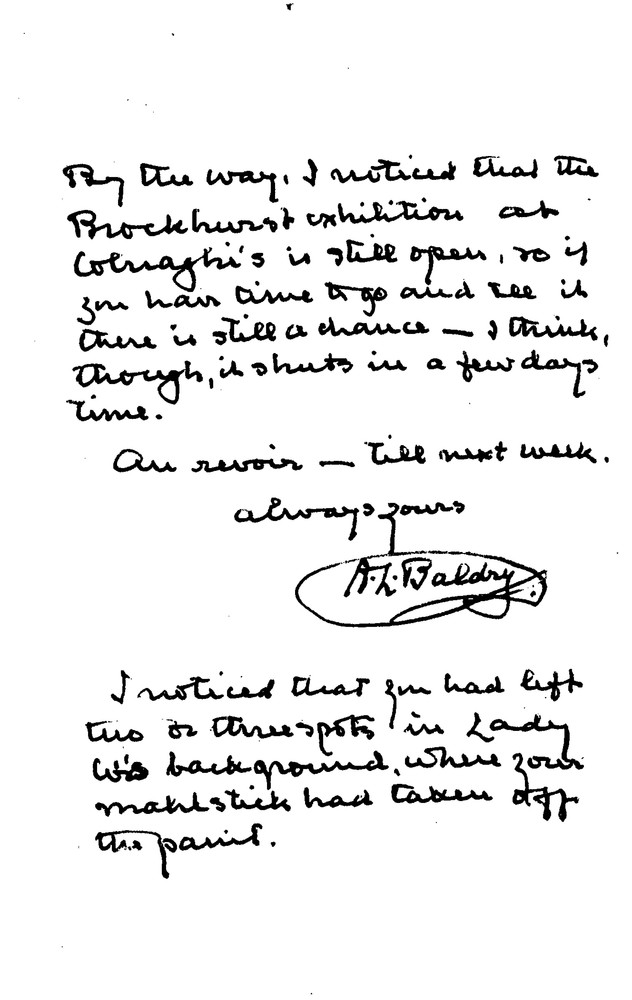 By the way, I noticed that the
Brockhurst exhibition at
Colnaghi's is still open, so if
you have time to go and see it
there is still a chance — I think,
though, it shuts in a few days
time.
Au revoir — till next week.
always yours
A.L. Baldry.
I noticed that you had left
two or three spots in Lady
W's background, where your
mahlstick had taken off
the paint.